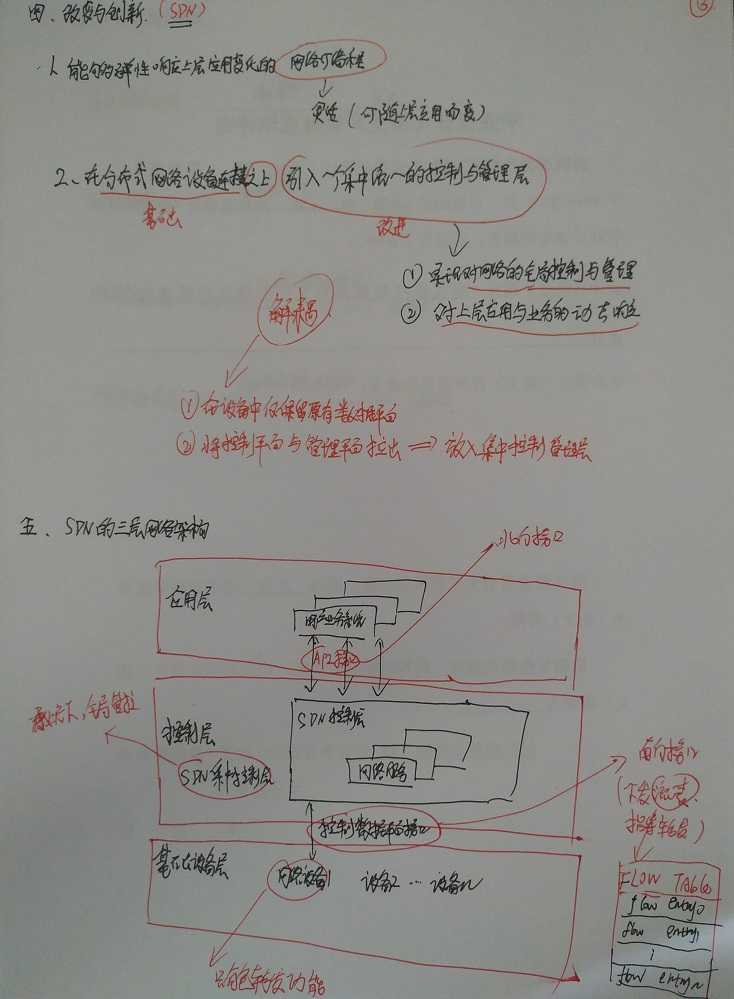 四、改变与创新 (SDN)
③
1. 能够弹性响应上层应用变化的网络可编程
灵活 (可随上层应用而变)
2、在分布式网络设备连接之上引入一个集中统一的控制与管理层
基础
改进
① 实现对网络的全局控制与管理
② 对上层应用与业务的动态响应
解耦
① 在设备中仅保留原有数据平面
② 将控制平面与管理平面抽出 ⇒ 放入集中控制管理层
五、SDN的三层网络架构
北向接口
应用层
用户业务系统
API接口
控制层
SDN控制层
全局管控
SDN集中控制层
网络服务
南向接口
(下发流表,
指导转发)
控制数据平面接口
基础设备层
网络设备1 设备2 … 设备n
只有包转发功能
FLOW TABLE
flow entry0
flow entry1
flow entryn